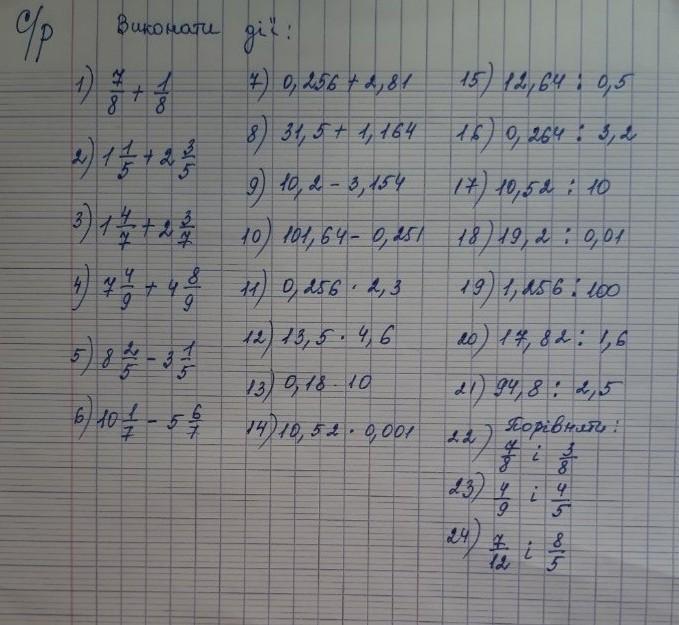 С/р Виконати дії:
1) 7/8 + 1/8
2) 1 1/5 + 2 3/5
3) 1 4/7 + 2 3/7
4) 7 4/9 + 4 8/9
5) 8 2/5 - 3 1/5
6) 10 1/7 - 5 6/7
7) 0,256 + 2,81
8) 31,5 + 1,164
9) 10,2 - 3,154
10) 101,64 - 0,251
11) 0,256 · 2,3
12) 13,5 · 4,6
13) 0,18 · 10
14) 10,52 · 0,001
15) 12,64 : 0,5
16) 0,264 : 3,2
17) 10,52 : 10
18) 19,2 : 0,01
19) 1,256 : 100
20) 17,82 : 1,6
21) 94,8 : 2,5
Порівняти:
22) 7/8 і 3/8
23) 4/9 і 4/5
24) 7/12 і 8/5